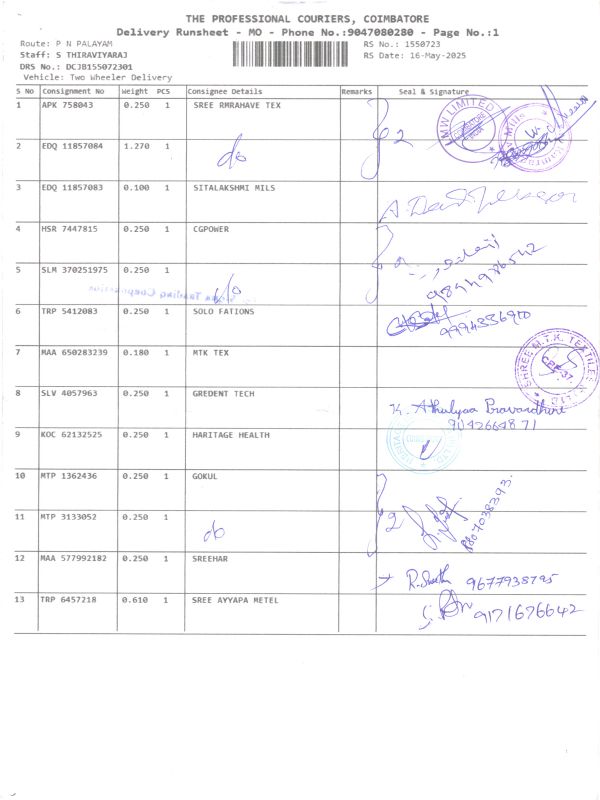 THE PROFESSIONAL COURIERS, COIMBATORE
Delivery Runsheet - MO - Phone No.:9047080280 - Page No.:1
Route: P N PALAYAM
Staff: S THIRAVIYARAJ
DRS No.: DCJB155072301
Vehicle: Two Wheeler Delivery
RS No.: 1550723
RS Date: 16-May-2025
S No Consignment No Weight PCS Consignee Details Remarks Seal & Signature
1 APK 758043 0.250 1 SREE RMRAHAVE TEX 2
LMW LIMITED
2 EDQ 11857084 1.270 1 do
3 EDQ 11857083 0.100 1 SITALAKSHMI MILS
4 HSR 7447815 0.250 1 CGPOWER
5 SLM 370251975 0.250 1 do
6 TRP 5412083 0.250 1 SOLO FATIONS 9994336900
7 MAA 650283239 0.180 1 MTK TEX
SHREE M.T.K. TEXTILES
8 SLV 4057963 0.250 1 GREDENT TECH
K. Athulyaa Pravardhini
9042664871
9 KOC 62132525 0.250 1 HARITAGE HEALTH
10 MTP 1362436 0.250 1 GOKUL
11 MTP 3133052 0.250 1 do 2
8807038393
12 MAA 577992182 0.250 1 SREEHAR 9677938795
13 TRP 6457218 0.610 1 SREE AYYAPA METEL 9171676642